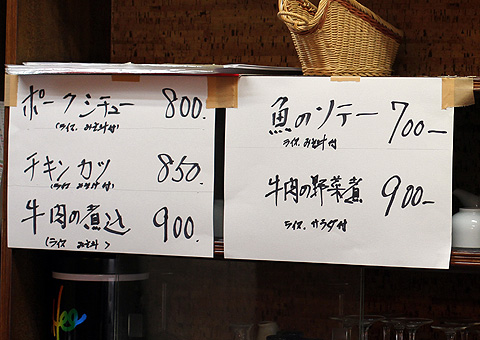 ポークシチュー 800.
(ライス、みそ汁付)
チキンカツ 850.
(ライス みそ汁付)
牛肉の煮込 900.
(ライス みそ汁)
魚のソテー 700-
ライス、みそ汁付
牛肉の野菜煮 900-
ライス、サラダ付